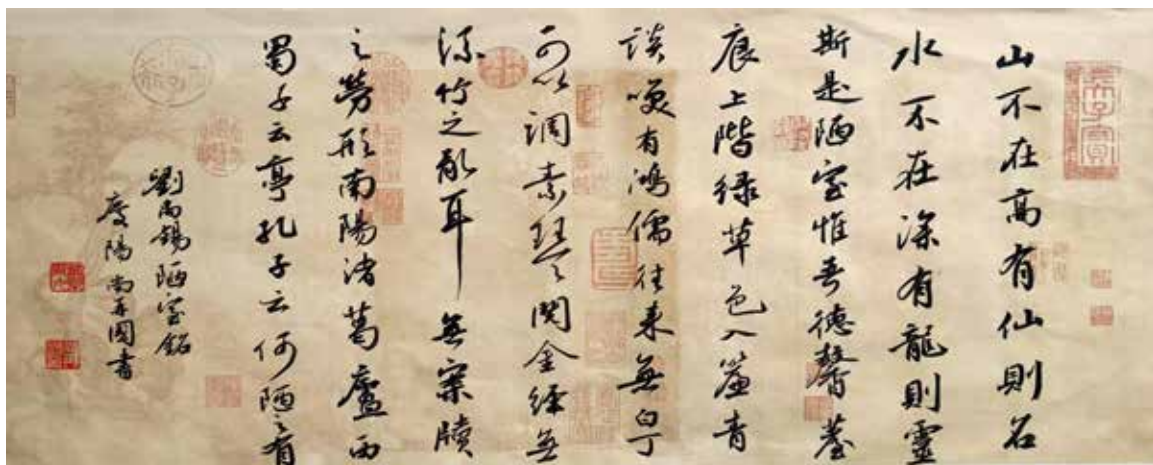 山不在高有仙則名
水不在深有龍則靈
斯是陋室惟吾德馨苔
痕上階绿草色入簾青
談笑有鴻儒往来無白丁
可以調素琴閱金經無
絲竹之亂耳無案牘
之勞形南陽諸葛廬西
蜀子云亭孔子云何陋之有
劉禹錫陋室銘
慶陽尚再國書